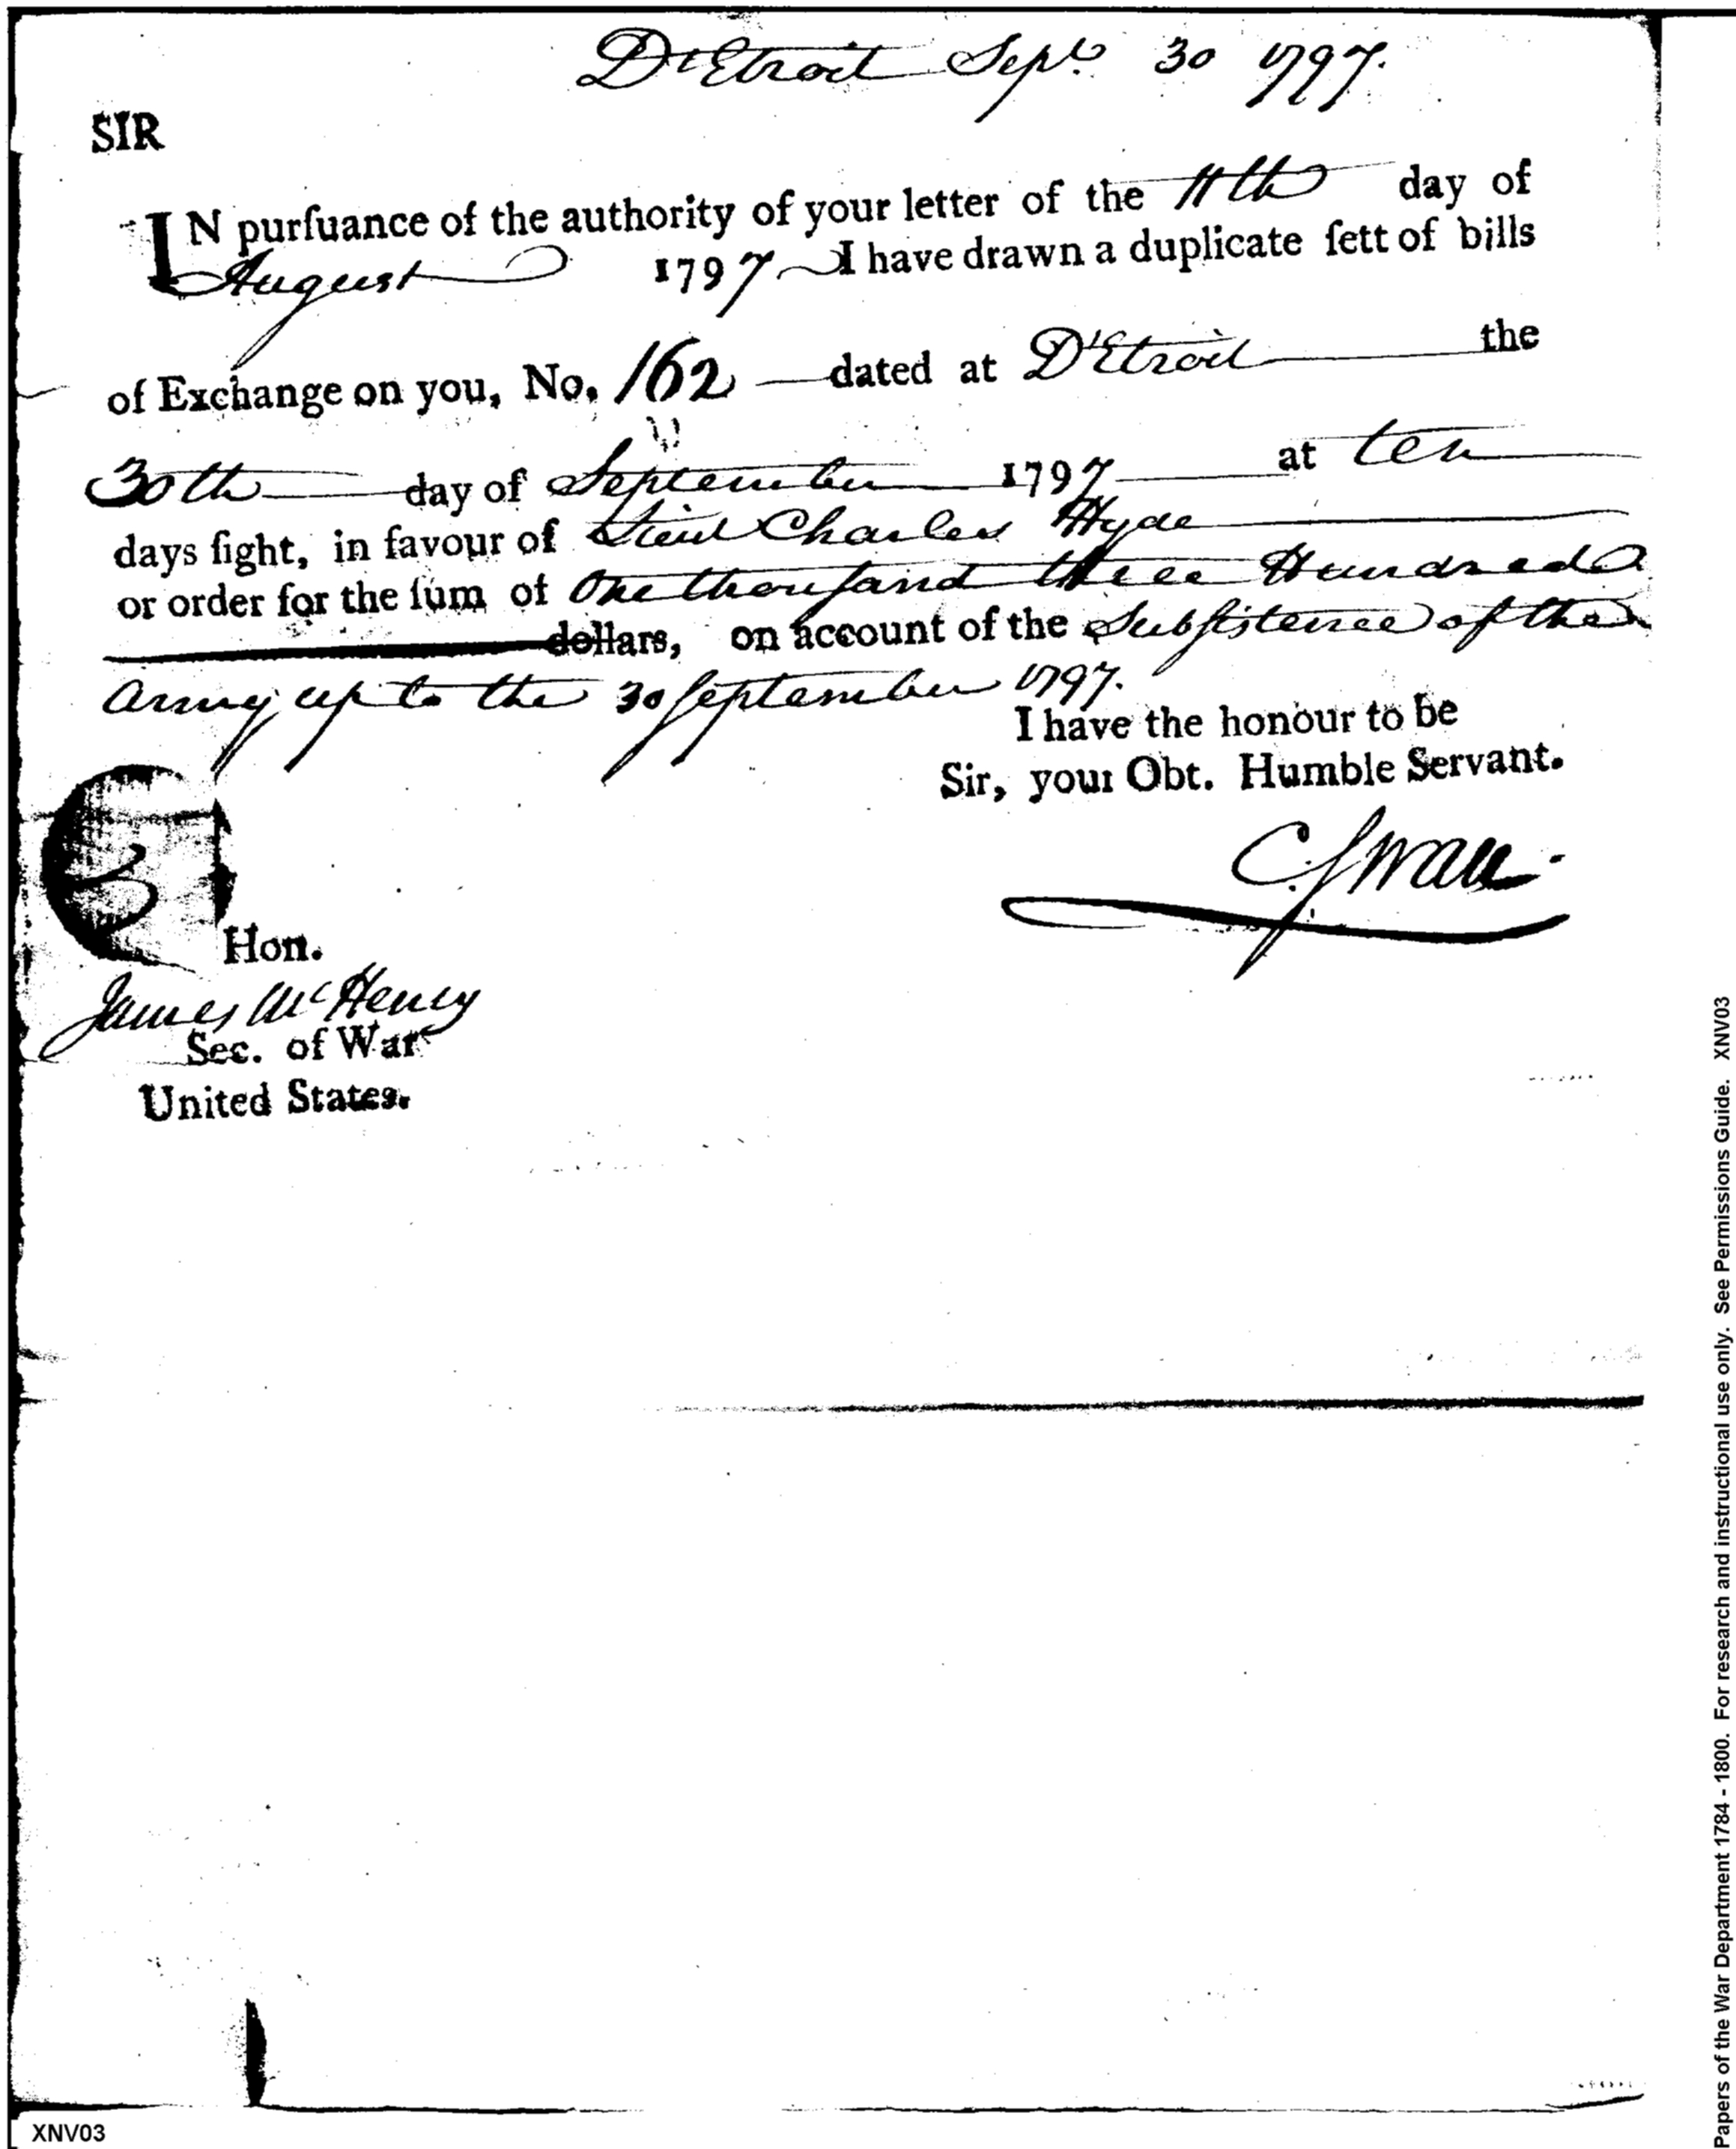 D'Etroit Sept. 30 1797.
SIR
IN purſuance of the authority of your letter of the 11th day of
August 1797 I have drawn a duplicate ſett of bills
of Exchange on you, No. 162 dated at D'Etroit the
30th day of September 1797 at ten
days ſight, in favour of Lieut Charles Hyde
or order for the ſum of One thouſand three Hundred
dollars, on account of the Subſistence of the
Army up to the 30 September 1797.
I have the honour to be
Sir, your Obt. Humble Servant.
C. Swan
Hon.
James McHenry
Sec. of War
United States.
XNV03
Papers of the War Department 1784 - 1800. For research and instructional use only. See Permissions Guide. XNV03